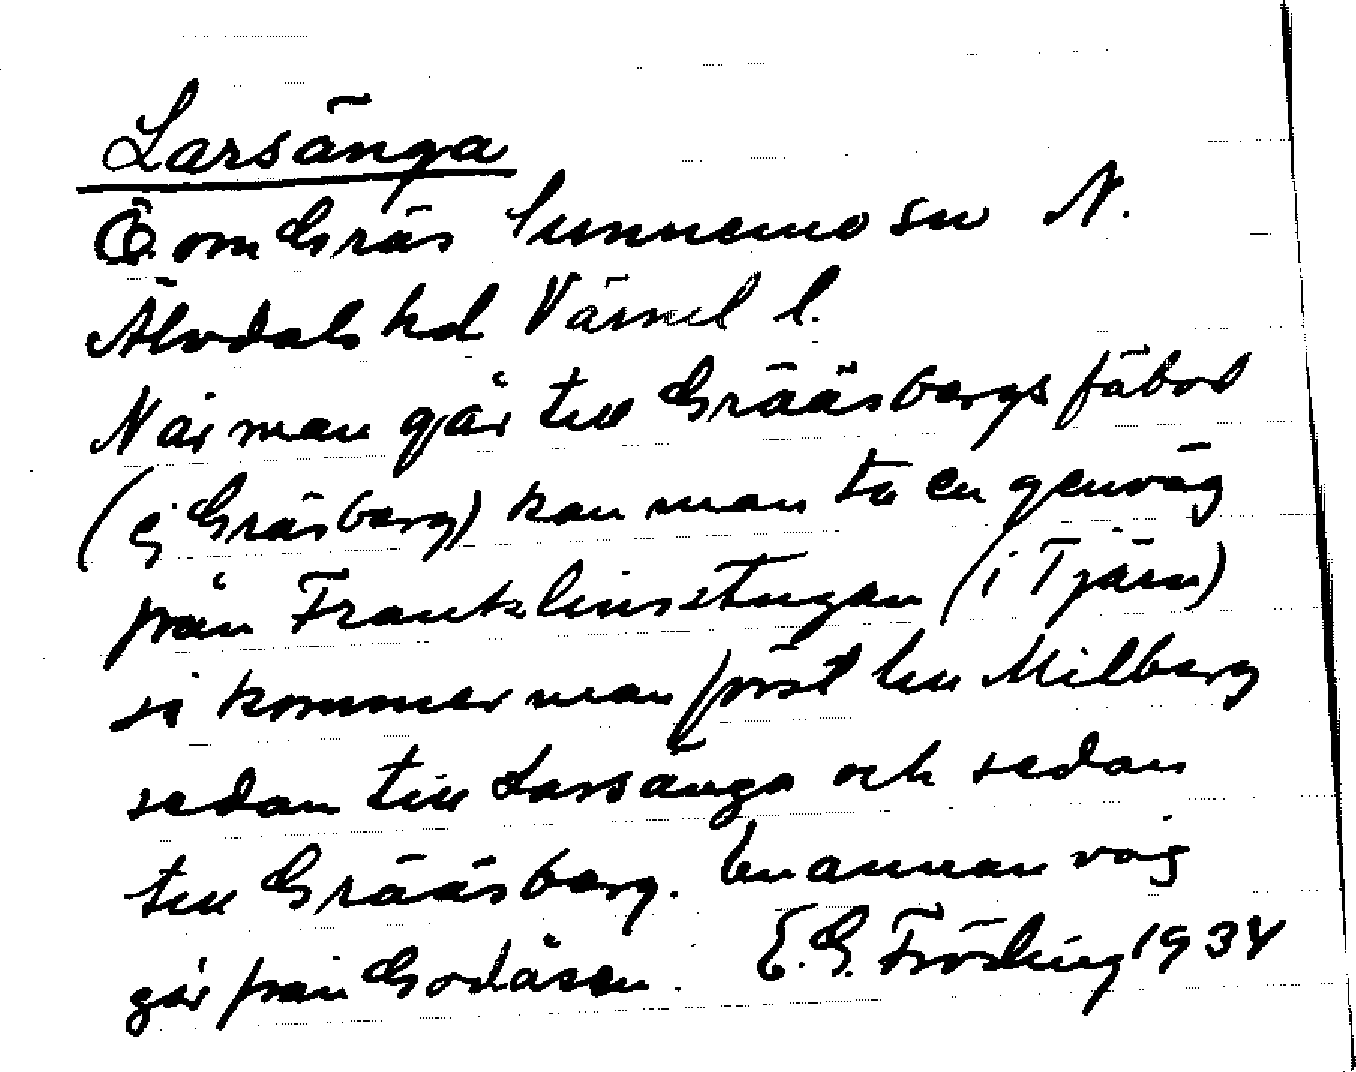 Larsänga
Ö. om Gräs Sunnemo sn N.
Älvdals hd Värml l.
När man går till Gräåsbergs fäbod
(ej Gräsberg) kan man ta en genväg
från Franklinsstugan (i Tjärn)
så kommer man först till Milberg
sedan till Larsänga och sedan
till Gräåsberg. En annan väg
går från Godåsen. E.G. Fröding 1934